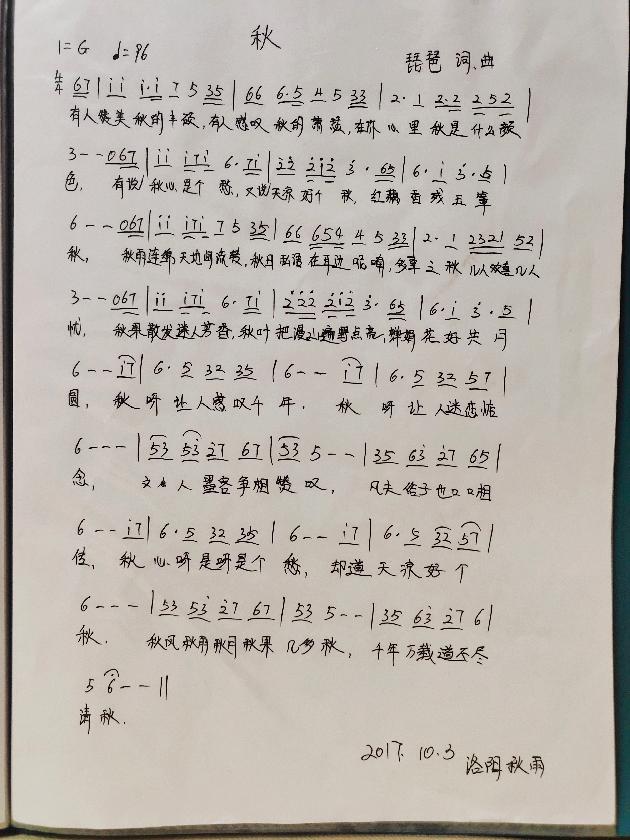 秋
1=G ♩=96
琵琶 词、曲
4/4 67 | i i i·i 7 5 35 | 66 6·5 4 5 33 | 2·1 2·2 252 |
有人赞美秋的丰硕,有人感叹秋的萧瑟,在你心里秋是什么颜
3--067 | i i i7i 6·7i | 22 212 3·65 | 6·i 3·5 |
色, 有说秋心是个愁,又说天凉好个秋,红藕香残玉簟
6--067 | i i i7i 7 5 35 | 66 654 4 5 33 | 2·1 2321 52 |
秋, 秋雨连绵天地间流转,秋日私语在耳边呢喃,多事之秋几人欢喜几人
3--067 | i i i7i 6·7i | 222 212 3·65 | 6·i 3·5 |
忧, 秋果散发迷人芳香,秋叶把漫山遍野点亮,蝉娟花好共月
6--i7 | 6·5 32 35 | 6--i7 | 6·5 32 57 |
圆, 秋呀让人感叹千年. 秋呀让人迷恋惦
6--- | 53 53 27 67 | 53 5-- | 35 63 27 65 |
念, 文人墨客争相赞叹, 凡夫俗子也口口相
6--i7 | 6·5 32 35 | 6--i7 | 6·5 32 57 |
传, 秋心呀是呀是个愁, 却道天凉好个
6--- | 53 53 27 67 | 53 5-- | 35 63 27 6 |
秋. 秋风秋雨秋月秋果几多秋, 千年万载道不尽
5 6--||
清秋.
2017.10.3
洛阳秋雨